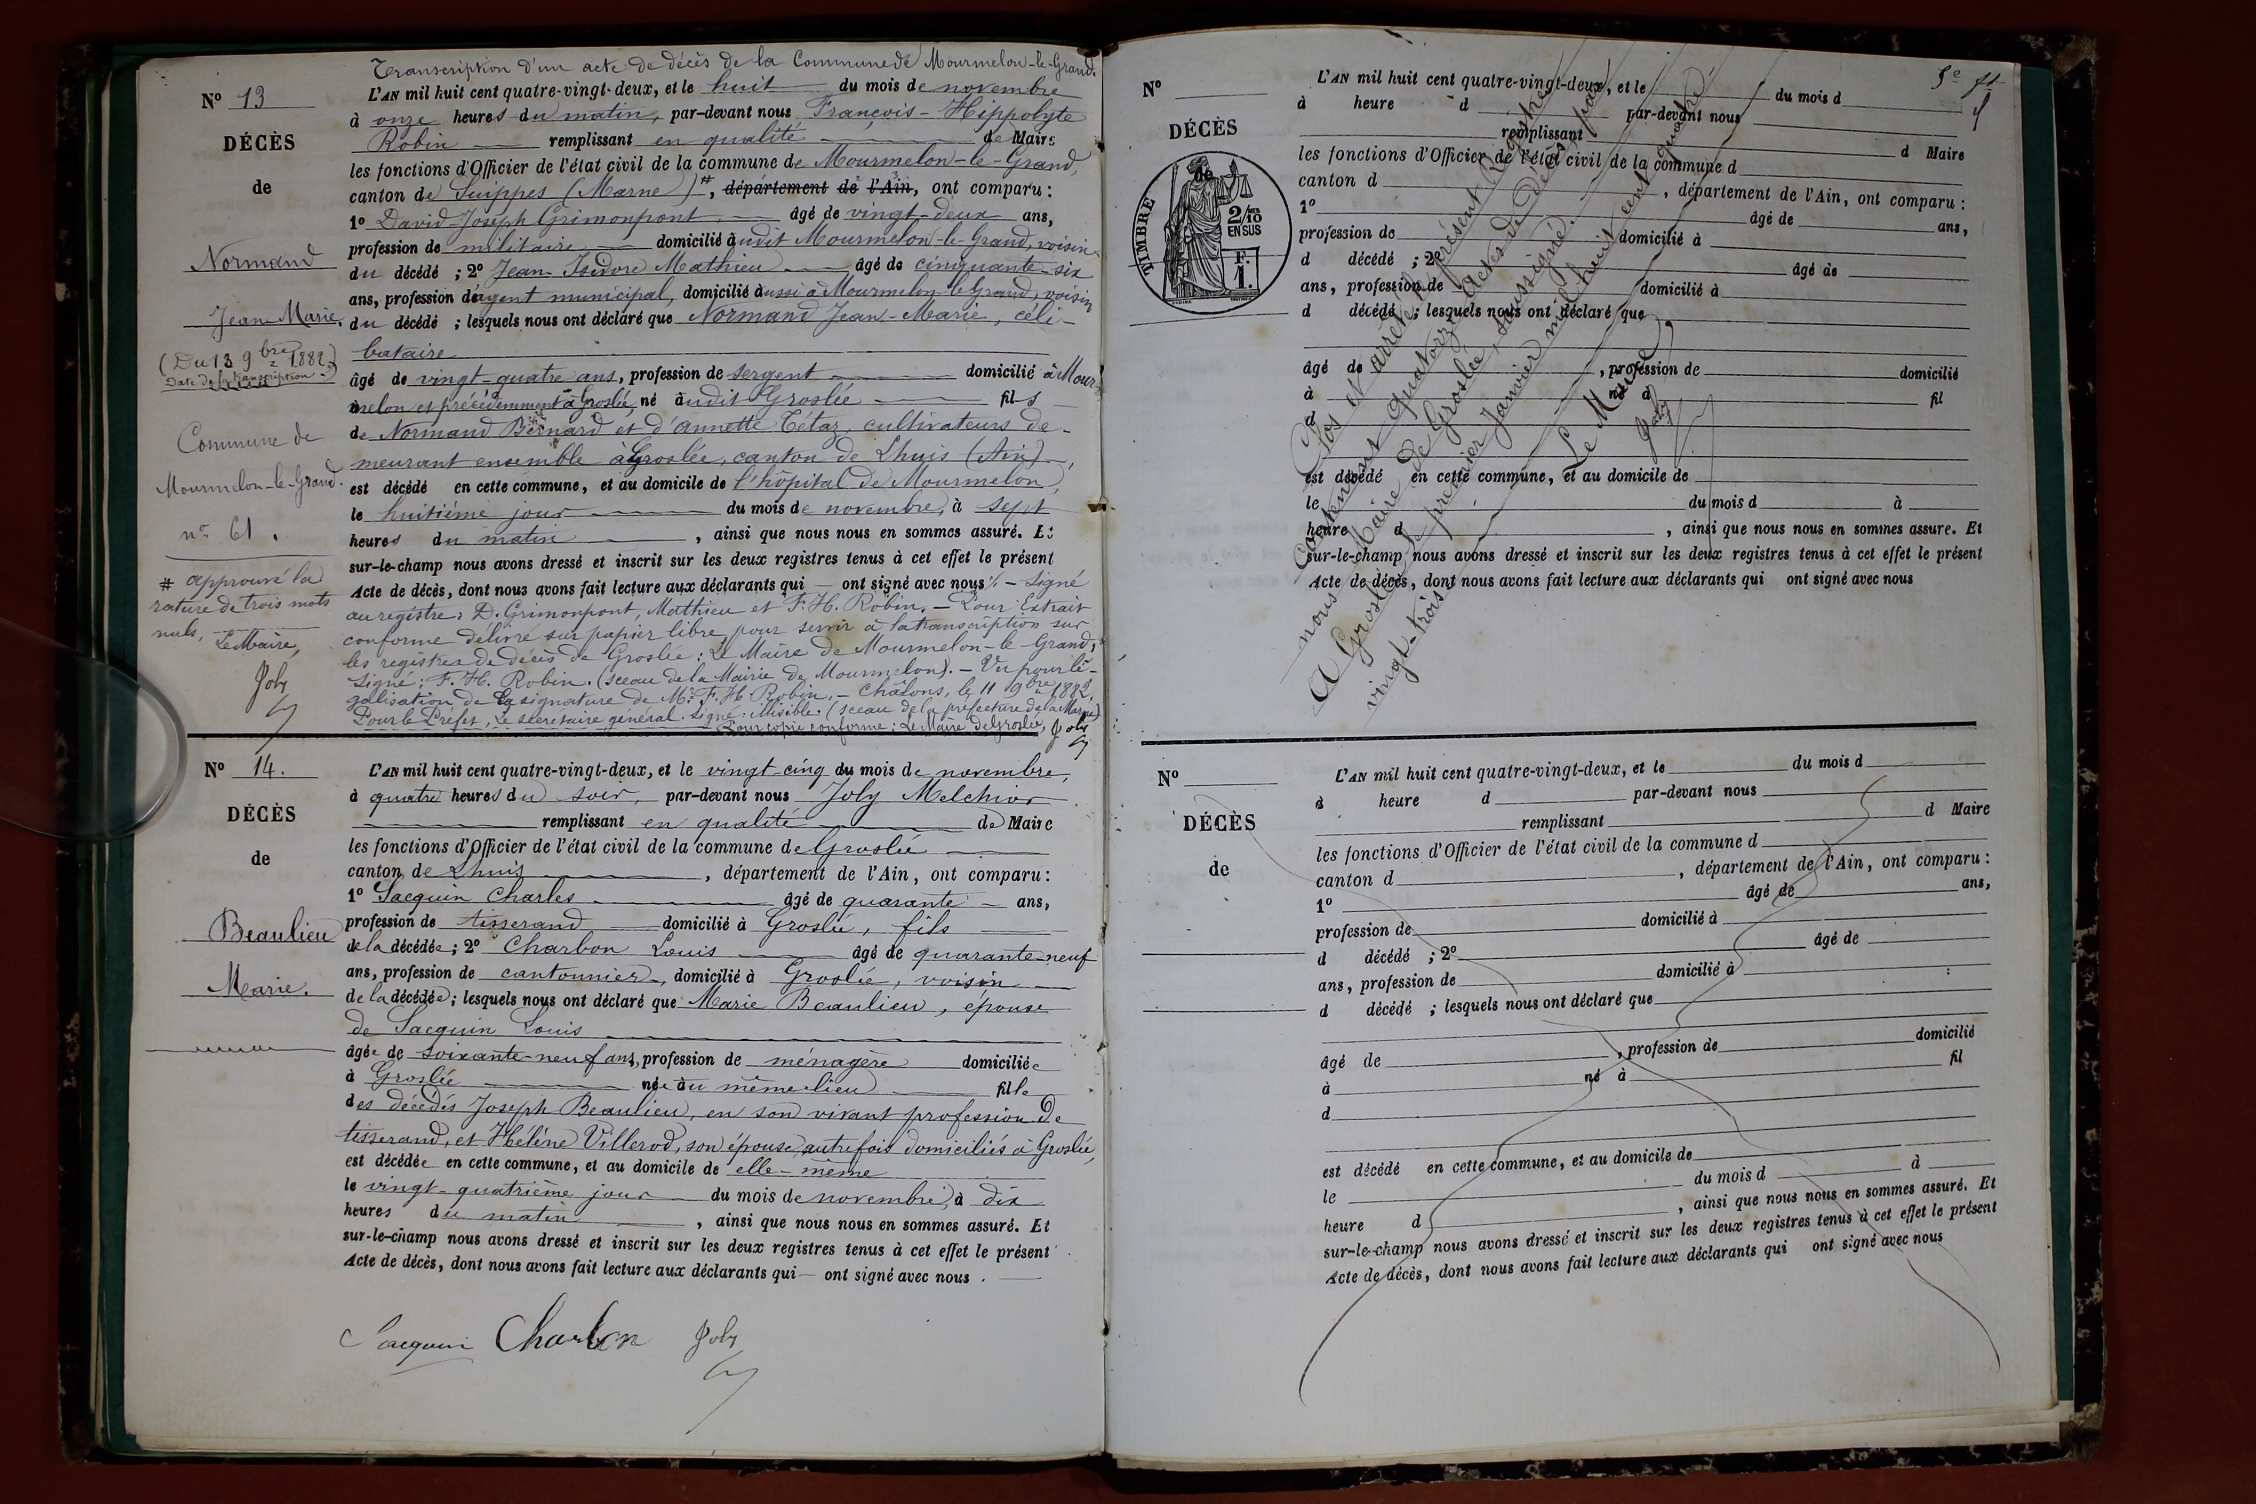 Transcription d'un acte de décès de la Commune de Mourmelon-le-Grand.
N° 13
DÉCÈS
de
Normand
Jean-Marie.
(Du 13 9bre 1882)
Date de la transcription
Commune de
Mourmelon-le-Grand.
n° 61.
# approuvé la
rature de trois mots
nuls,
Le Maire,
Joly
L'AN mil huit cent quatre-vingt-deux, et le huit du mois de novembre
à onze heures du matin, par-devant nous François-Hippolyte
Robin remplissant en qualité de Maire
les fonctions d'Officier de l'état civil de la commune de Mourmelon-le-Grand,
canton de Suippes (Marne) #, département de l'Ain, ont comparu :
1° David-Joseph Grimonpont âgé de vingt-deux ans,
profession de militaire domicilié audit Mourmelon-le-Grand, voisin
du décédé ; 2° Jean-Isidore Mathieu âgé de cinquante-six
ans, profession d'agent municipal, domicilié aussi à Mourmelon-le-Grand, voisin
du décédé ; lesquels nous ont déclaré que Normand Jean-Marie, céli-
bataire
âgé de vingt-quatre ans, profession de sergent domicilié à Mour-
melon et précédemment à Groslée, né audit Groslée fils
de Normand Bernard et d'Annette Tétaz, cultivateurs de-
meurant ensemble à Groslée, canton de Lhuis (Ain),
est décédé en cette commune, et au domicile de l'hôpital de Mourmelon,
le huitième jour du mois de novembre, à sept
heures du matin, ainsi que nous nous en sommes assuré. Et
sur-le-champ nous avons dressé et inscrit sur les deux registres tenus à cet effet le présent
Acte de décès, dont nous avons fait lecture aux déclarants qui — ont signé avec nous — Signé
au registre : D. Grimonpont, Mathieu et F. H. Robin. — Pour Extrait
conforme délivré sur papier libre pour servir à la transcription sur
les registres de décès de Groslée : Le Maire de Mourmelon-le-Grand,
Signé : F. H. Robin. (sceau de la Mairie de Mourmelon). — Vu pour lé-
galisation de la signature de Mr F. H. Robin. — Châlons, le 11 9bre 1882.
Pour le Préfet, Le secrétaire général. Signé : illisible. (sceau de la préfecture de la Marne)
Pour copie conforme : Le Maire de Groslée, Joly
N° 14.
DÉCÈS
de
Beaulieu
Marie.
L'AN mil huit cent quatre-vingt-deux, et le vingt-cinq du mois de novembre,
à quatre heures du soir, par-devant nous Joly Melchior
remplissant en qualité de Maire
les fonctions d'Officier de l'état civil de la commune de Groslée
canton de Lhuis, département de l'Ain, ont comparu :
1° Sacquin Charles âgé de quarante ans,
profession de tisserand domicilié à Groslée, fils
de la décédée ; 2° Charbon Louis âgé de quarante-neuf
ans, profession de cantonnier, domicilié à Groslée, voisin
de la décédée ; lesquels nous ont déclaré que Marie Beaulieu, épouse
de Sacquin Louis
âgée de soixante-neuf ans, profession de ménagère domiciliée
à Groslée née au même lieu fille
des décédés Joseph Beaulieu, en son vivant profession de
tisserand, et Hélène Villerod, son épouse, autrefois domiciliés à Groslée,
est décédée en cette commune, et au domicile de elle-même
le vingt-quatrième jour du mois de novembre, à dix
heures du matin, ainsi que nous nous en sommes assuré. Et
sur-le-champ nous avons dressé et inscrit sur les deux registres tenus à cet effet le présent
Acte de décès, dont nous avons fait lecture aux déclarants qui — ont signé avec nous.
Sacquin Charbon Joly
5e
N°
DÉCÈS
de
TIMBRE
2/10 EN SUS
F. 1.
L'AN mil huit cent quatre-vingt-deux, et le du mois d
à heure d par-devant nous
remplissant d Maire
les fonctions d'Officier de l'état civil de la commune d
canton d , département de l'Ain, ont comparu :
1° âgé de ans,
profession de domicilié à
d décédé ; 2° âgé de
ans, profession de domicilié à
d décédé ; lesquels nous ont déclaré que
âgé de , profession de domicilié
à né à fil
d
est décédé en cette commune, et au domicile de
le du mois d à
heure d , ainsi que nous nous en sommes assuré. Et
sur-le-champ nous avons dressé et inscrit sur les deux registres tenus à cet effet le présent
Acte de décès, dont nous avons fait lecture aux déclarants qui ont signé avec nous
Clos et arrêté le présent Registre
contenant quatorze actes de Décès, par
nous Maire de Groslée, soussigné.
A Groslée, le premier Janvier mil huit cent quatre
vingt-trois.
Le Maire,
Joly
N°
DÉCÈS
de
L'AN mil huit cent quatre-vingt-deux, et le du mois d
à heure d par-devant nous
remplissant d Maire
les fonctions d'Officier de l'état civil de la commune d
canton d , département de l'Ain, ont comparu :
1° âgé de ans,
profession de domicilié à
d décédé ; 2° âgé de
ans, profession de domicilié à
d décédé ; lesquels nous ont déclaré que
âgé de , profession de domicilié
à né à fil
d
est décédé en cette commune, et au domicile de
le du mois d à
heure d , ainsi que nous nous en sommes assuré. Et
sur-le-champ nous avons dressé et inscrit sur les deux registres tenus à cet effet le présent
Acte de décès, dont nous avons fait lecture aux déclarants qui ont signé avec nous